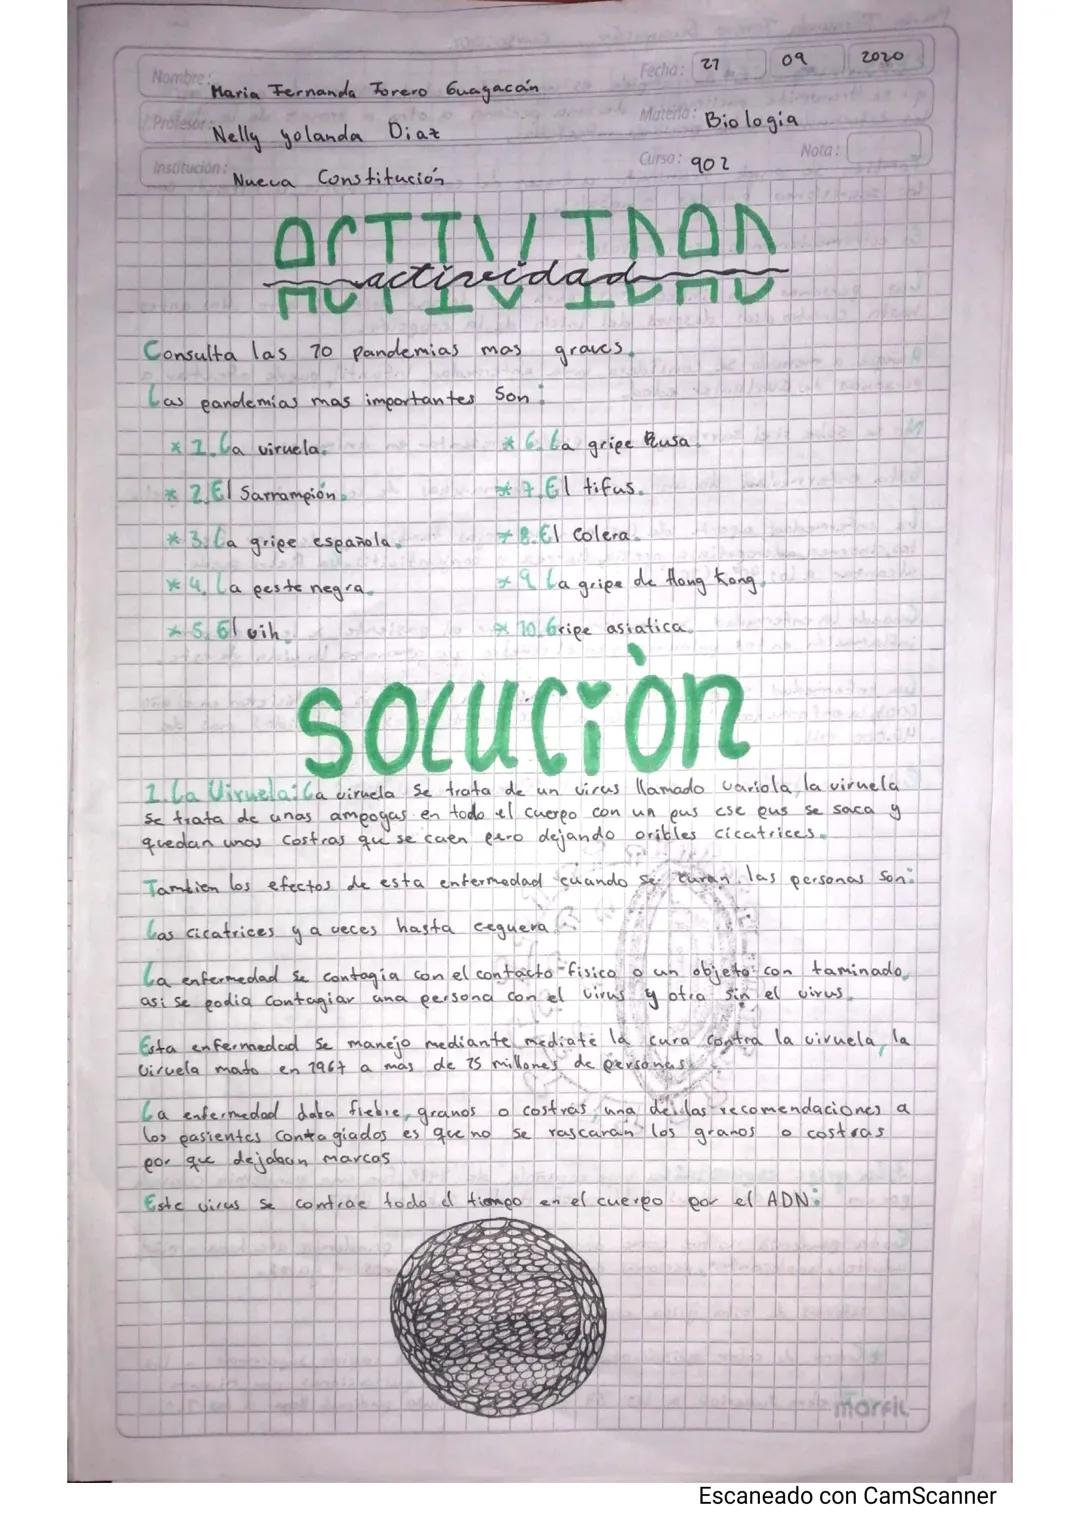 Nombre: Maria Fernanda Forero Guagacán
Fecha: 27 09 2020
Profesor: Nelly yolanda Diaz
Materia: Biologia
Institución: Nueva Constitución
Curso: 902
Nota:
ACTIVIDAD
actividad
Consulta las 10 pandemias mas graves.
Las pandemias mas importantes Son:
* 1. La viruela.
* 2. El Sarrampión.
* 3. La gripe española.
* 4. La peste negra.
* 5. El vih.
* 6. La gripe Rusa.
* 7. El tifus.
* 8. El Colera.
* 9 La gripe de Hong Kong.
* 10. Gripe asiatica.
SOLUCIÒN
1. La Viruela: La viruela Se trata de un virus llamado variola, la viruela
se trata de unas ampogas en todo el cuerpo con un pus ese pus se saca y
quedan unas Costras que se caen pero dejando oribles cicatrices.
Tambien los efectos de esta enfermedad cuando se curan las personas son:
Las cicatrices y a veces hasta ceguera.
La enfermedad se contagia con el contacto fisico o un objeto con taminado,
asi se podia contagiar una persona con el virus y otra sin el virus.
Esta enfermedad se manejo mediante mediate la cura contra la viruela, la
viruela mato en 1967 a mas de 15 millones de personas.
La enfermedad daba fiebre, granos o costras, una de las recomendaciones a
los pasientes contagiados es que no se rascaran los granos o costras
por que dejaban marcas
Este virus se contrae todo el tiempo en el cuerpo por el ADN:
marfil
Escaneado con CamScanner